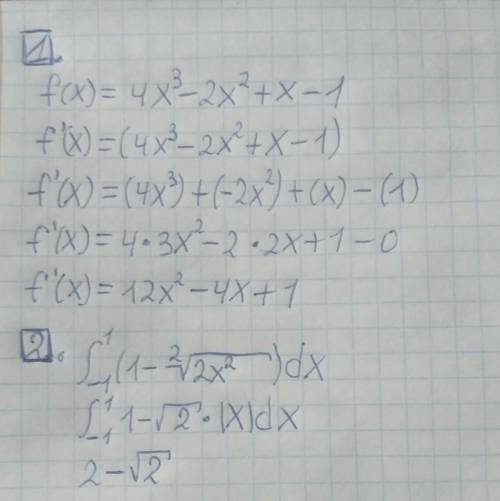 1.
f(x) = 4x³ - 2x² + x - 1
f'(x) = (4x³ - 2x² + x - 1)
f'(x) = (4x³) + (-2x²) + (x) - (1)
f'(x) = 4 · 3x² - 2 · 2x + 1 - 0
f'(x) = 12x² - 4x + 1
2.
∫₋₁¹ (1 - ²√(2x²)) dx
∫₋₁¹ 1 - √2 · |x| dx
2 - √2